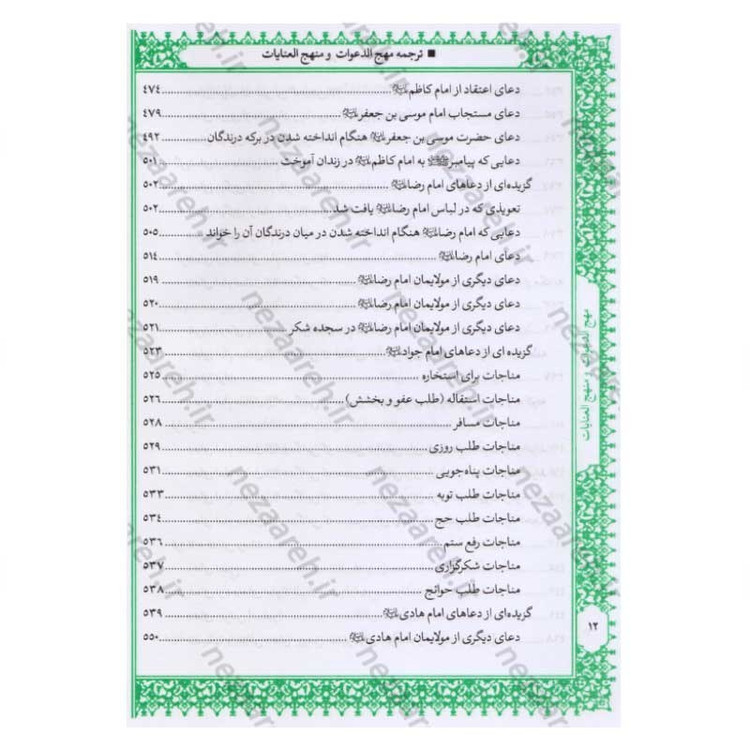 ■ ترجمه مهج الدعوات و منهج العنایات
دعای اعتقاد از امام کاظم؏ ٤٧٤
دعای مستجاب امام موسی بن جعفر؏ ٤٧٩
دعای حضرت موسی بن جعفر؏ هنگام انداخته شدن در برکه درندگان ٤٩٢
دعایی که پیامبرﷺ به امام کاظم؏ در زندان آموخت ٥٠١
گزیده‌ای از دعاهای امام رضا؏ ٥٠٢
تعویذی که در لباس امام رضا؏ یافت شد ٥٠٢
دعایی که امام رضا؏ هنگام انداخته شدن در میان درندگان آن را خواند ٥٠٥
دعای امام رضا؏ ٥١٤
دعای دیگری از مولایمان امام رضا؏ ٥١٩
دعای دیگری از مولایمان امام رضا؏ ٥٢٠
دعای دیگری از مولایمان امام رضا؏ در سجده شکر ٥٢١
گزیده ای از دعاهای امام جواد؏ ٥٢٣
مناجات برای استخاره ٥٢٥
مناجات استقاله (طلب عفو و بخشش) ٥٢٦
مناجات مسافر ٥٢٨
مناجات طلب روزی ٥٢٩
مناجات پناه‌جویی ٥٣١
مناجات طلب توبه ٥٣٣
مناجات طلب حج ٥٣٤
مناجات رفع ستم ٥٣٦
مناجات شکرگزاری ٥٣٧
مناجات طلب حوائج ٥٣٨
گزیده‌ای از دعاهای امام هادی؏ ٥٣٩
دعای دیگری از مولایمان امام هادی؏ ٥٥٠
مهج الدعوات و منهج العنایات
١٢
nezaareh.ir